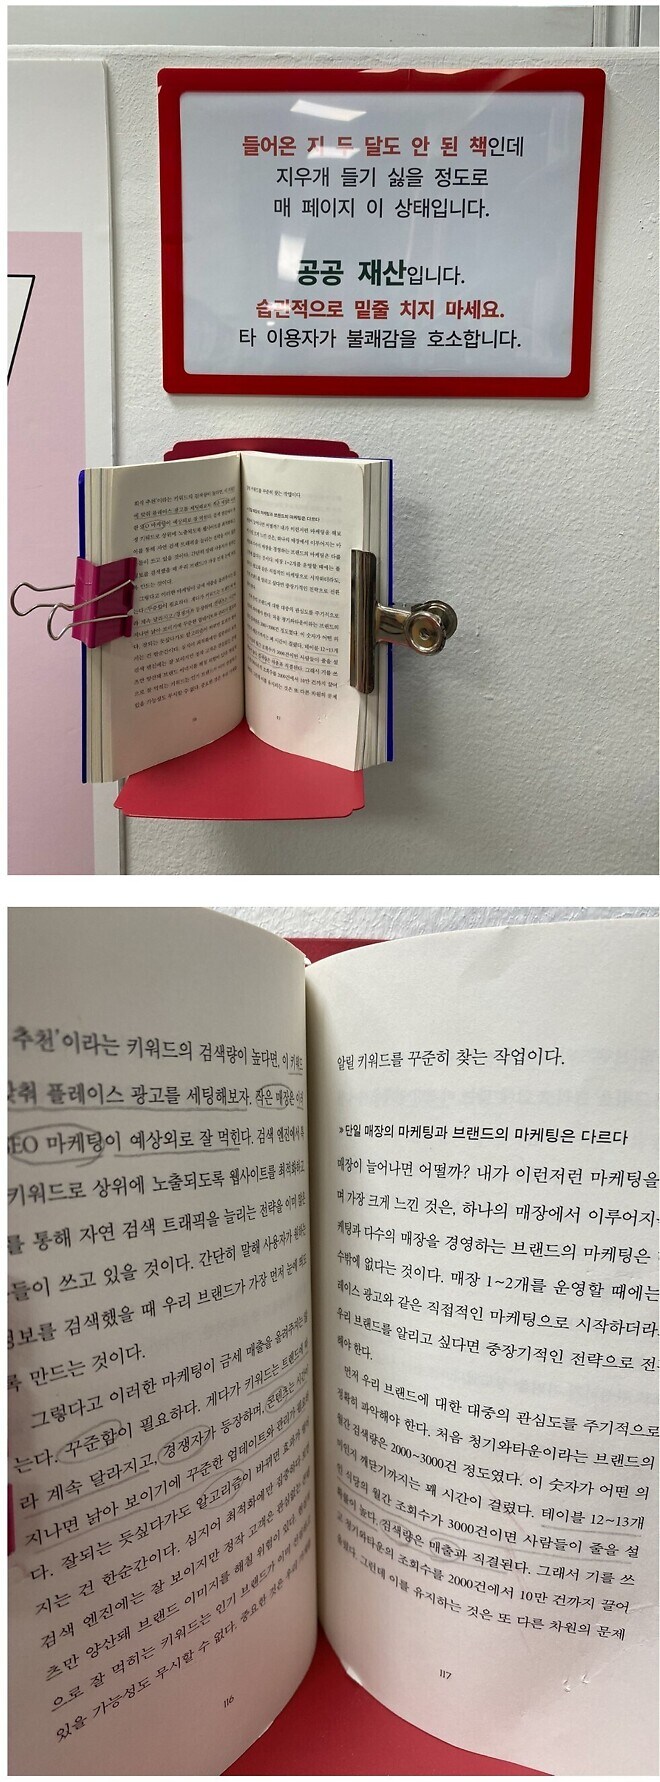 들어온 지 두 달도 안 된 책인데
지우개 들기 싫을 정도로
매 페이지 이 상태입니다.
공공 재산입니다.
습관적으로 밑줄 치지 마세요.
타 이용자가 불쾌감을 호소합니다.
추천'이라는 키워드의 검색량이 높다면, 이 키워드
맞춰 플레이스 광고를 세팅해보자. 작은 매장은 이런
SEO 마케팅이 예상외로 잘 먹힌다. 검색 엔진에서 특
키워드로 상위에 노출되도록 웹사이트를 최적화하고
를 통해 자연 검색 트래픽을 늘리는 전략을 이미 많은
들이 쓰고 있을 것이다. 간단히 말해 사용자가 원하는
정보를 검색했을 때 우리 브랜드가 가장 먼저 눈에 띄도
록 만드는 것이다.
그렇다고 이러한 마케팅이 금세 매출을 올려주지는 않
는다. 꾸준함이 필요하다. 게다가 키워드는 트렌드에 따
라 계속 달라지고, 경쟁자가 등장하며, 콘텐츠는 시간이
지나면 낡아 보이기에 꾸준한 업데이트와 관리가 필요하
다. 잘되는 듯싶다가도 알고리즘이 바뀌면 효과가 떨어
지는 건 한순간이다. 심지어 최적화에만 집중하다 보면
검색 엔진에는 잘 보이지만 정작 고객은 관심없는 콘텐
츠만 양산돼 브랜드 이미지를 해칠 위험이 있다.
으로 잘 먹히는 키워드는 인기 브랜드가 이미 선점하고
있을 가능성도 무시할 수 없다. 중요한 것은 우리 가게를
116
알릴 키워드를 꾸준히 찾는 작업이다.
» 단일 매장의 마케팅과 브랜드의 마케팅은 다르다
매장이 늘어나면 어떨까? 내가 이런저런 마케팅을
며 가장 크게 느낀 것은, 하나의 매장에서 이루어지는
케팅과 다수의 매장을 경영하는 브랜드의 마케팅은
수밖에 없다는 것이다. 매장 1~2개를 운영할 때에는
레이스 광고와 같은 직접적인 마케팅으로 시작하더라도
우리 브랜드를 알리고 싶다면 중장기적인 전략으로 전환
해야 한다.
먼저 우리 브랜드에 대한 대중의 관심도를 주기적으로
정확히 파악해야 한다. 처음 청기와타운이라는 브랜드의
월간 검색량은 2000~3000건 정도였다. 이 숫자가 어떤 의
미인지 깨닫기까지는 꽤 시간이 걸렸다. 테이블 12~13개
인 식당의 월간 조회수가 3000건이면 사람들이 줄을 설
확률이 높다. 검색량은 매출과 직결된다. 그래서 기를 쓰
고 청기와타운의 조회수를 2000건에서 10만 건까지 끌어
올렸다. 그런데 이를 유지하는 것은 또 다른 차원의 문제
117